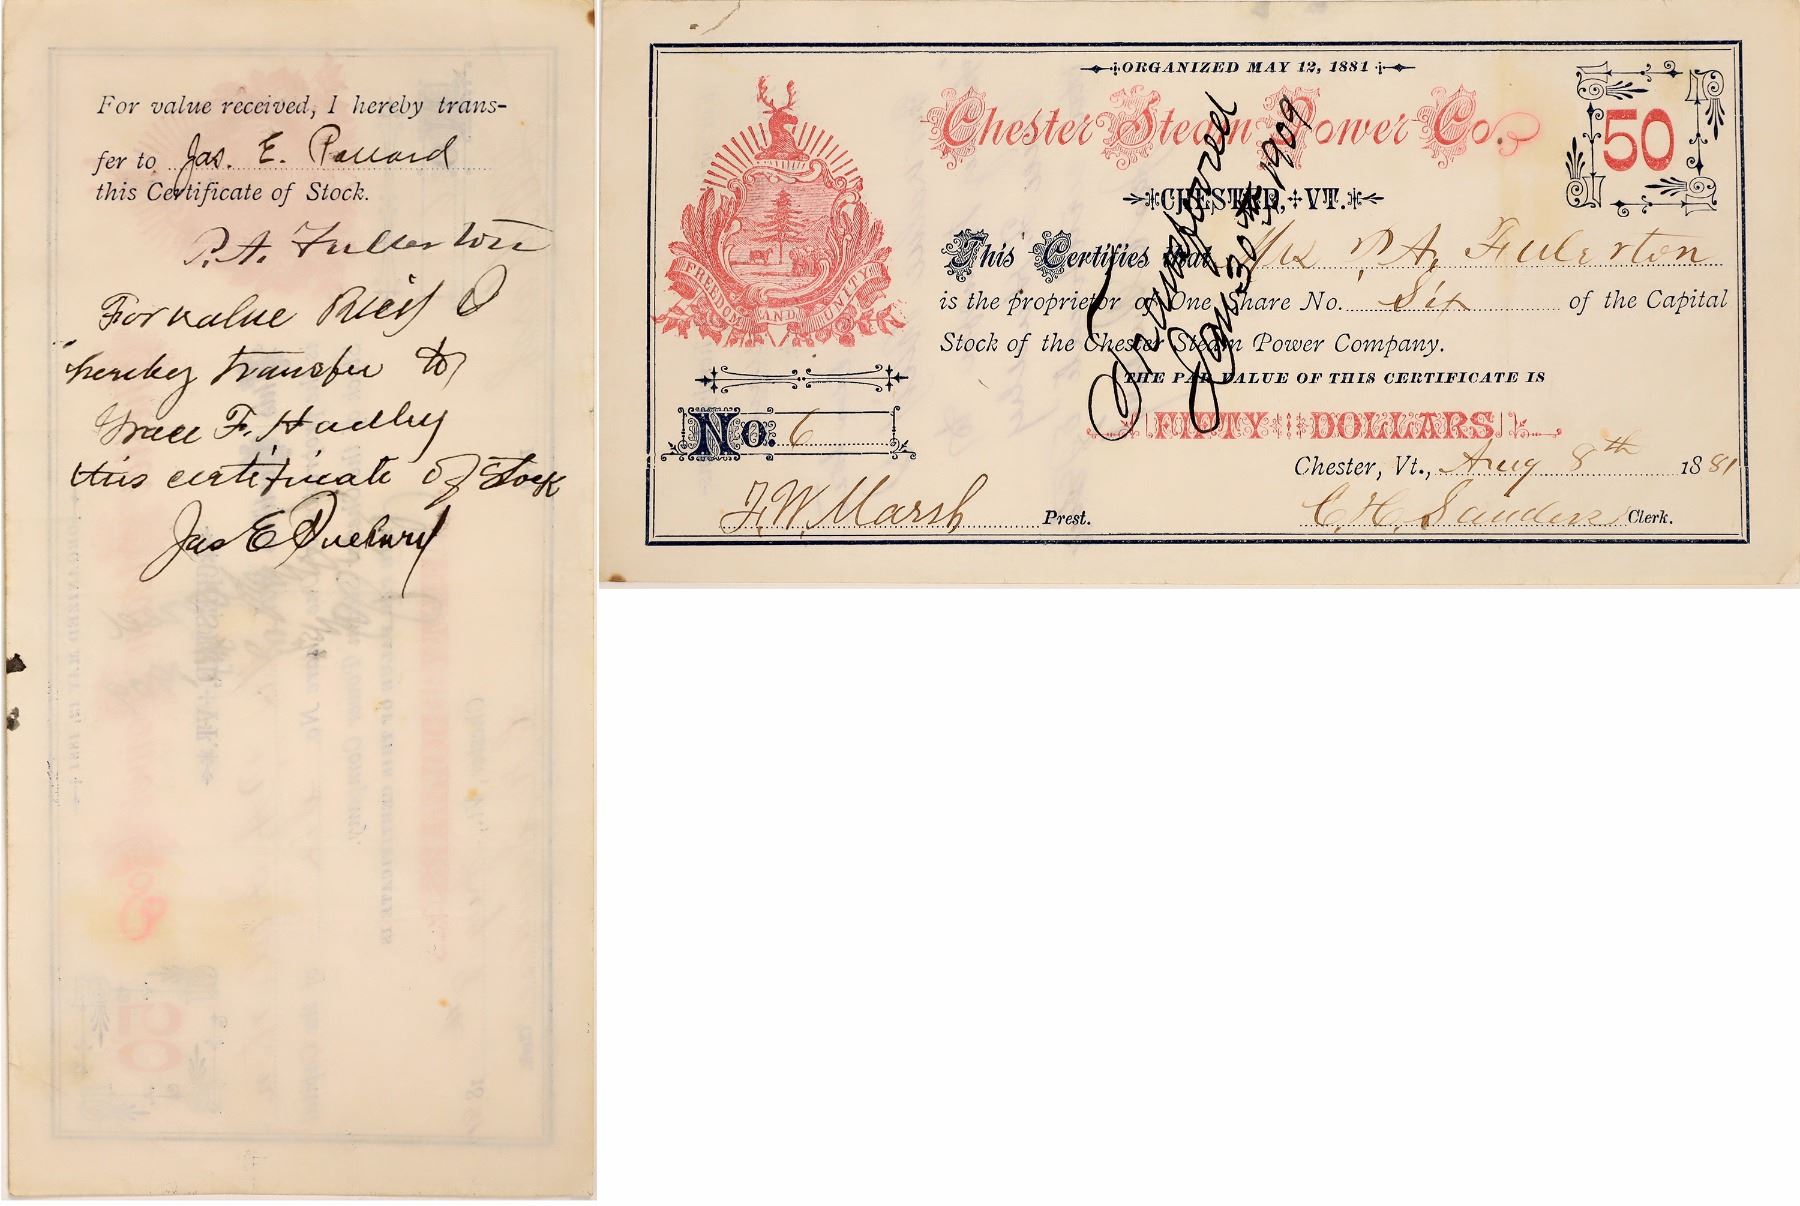 For value received, I hereby trans-
fer to Jas. E. Pollard
this Certificate of Stock.
P. A. Fullerton
For value Rec'd I
hereby transfer to
F. Hadley
this certificate of Stock
Jas E
ORGANIZED MAY 12, 1881
Chester Steam Power Co.
50
CHESTER, VT.
This Certifies that P. A. Fullerton
is the proprietor of One Share No. Six of the Capital
Stock of the Chester Steam Power Company.
THE PAR VALUE OF THIS CERTIFICATE IS
FIFTY DOLLARS
Chester, Vt., Aug 8th 1881
F. W. Marsh Prest.
C. H. Sanders Clerk.
FREEDOM AND UNITY
No. 6
Transferred
30th 1909